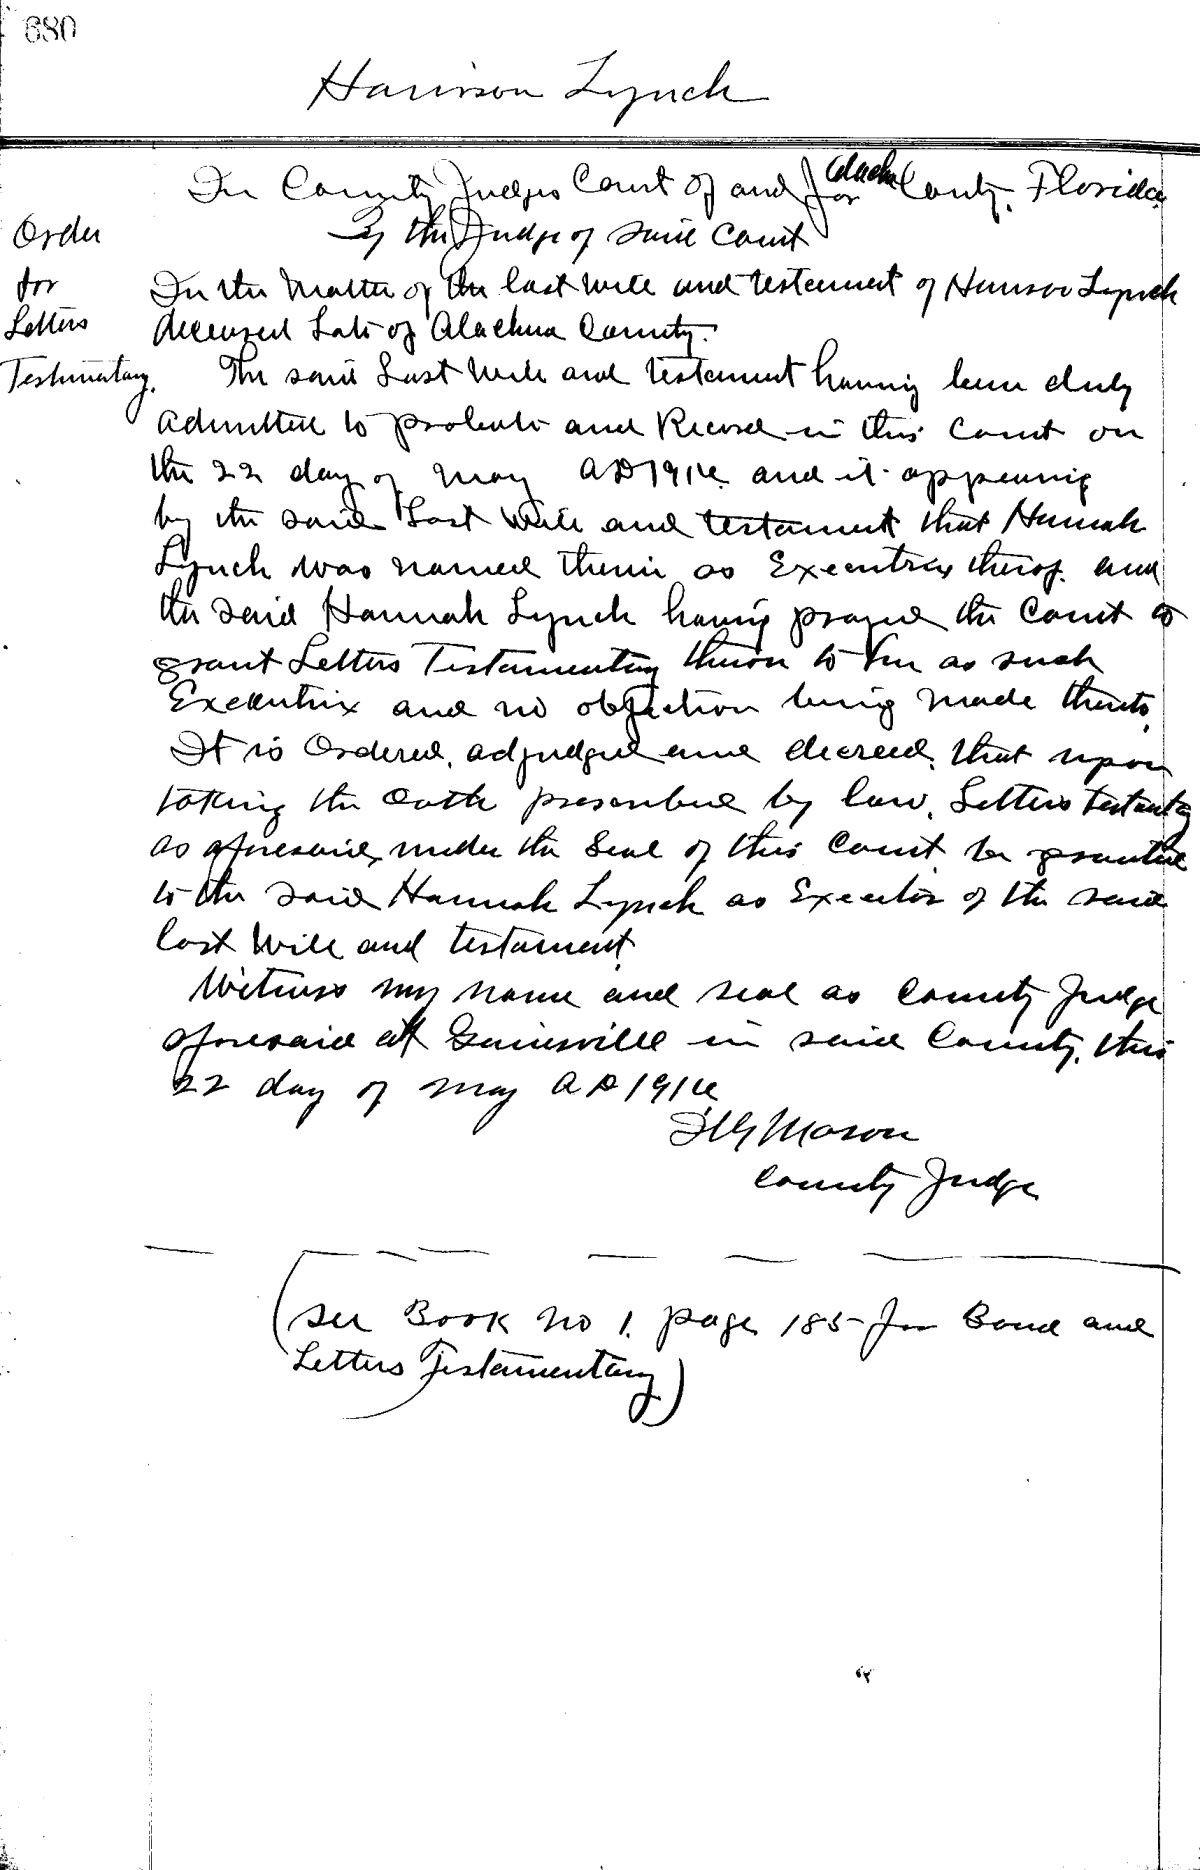 680
Harrison Lynch
In County Judges Court of and for Alachua County, Florida,
By the Judge of said Court
Order
for
Letters
Testimentary.
In the Matter of the last will and testament of Harrison Lynch
deceased Late of Alachua County.
The said Last Will and testament having been duly
admitted to probate and Record in this Court on
the 22 day of May AD 1914 and it appearing
by the said Last Will and testament that Hannah
Lynch was named therein as Executrix thereof. and
the said Hannah Lynch having prayed the Court to
grant Letters Testamentary thereon to her as such
Executrix and no objection being made thereto,
It is Ordered, adjudged and decreed, that upon
taking the Oath prescribed by law, Letters
as aforesaid, under the Seal of this Court be granted
to the said Hannah Lynch as Executrix of the said
last Will and testament.
Witness my name and seal as County Judge
aforesaid at Gainesville in said County, this
22 day of May AD 1914
H G Mason
County Judge
(See Book No 1. page 185 for Bond and
Letters Testamentary)